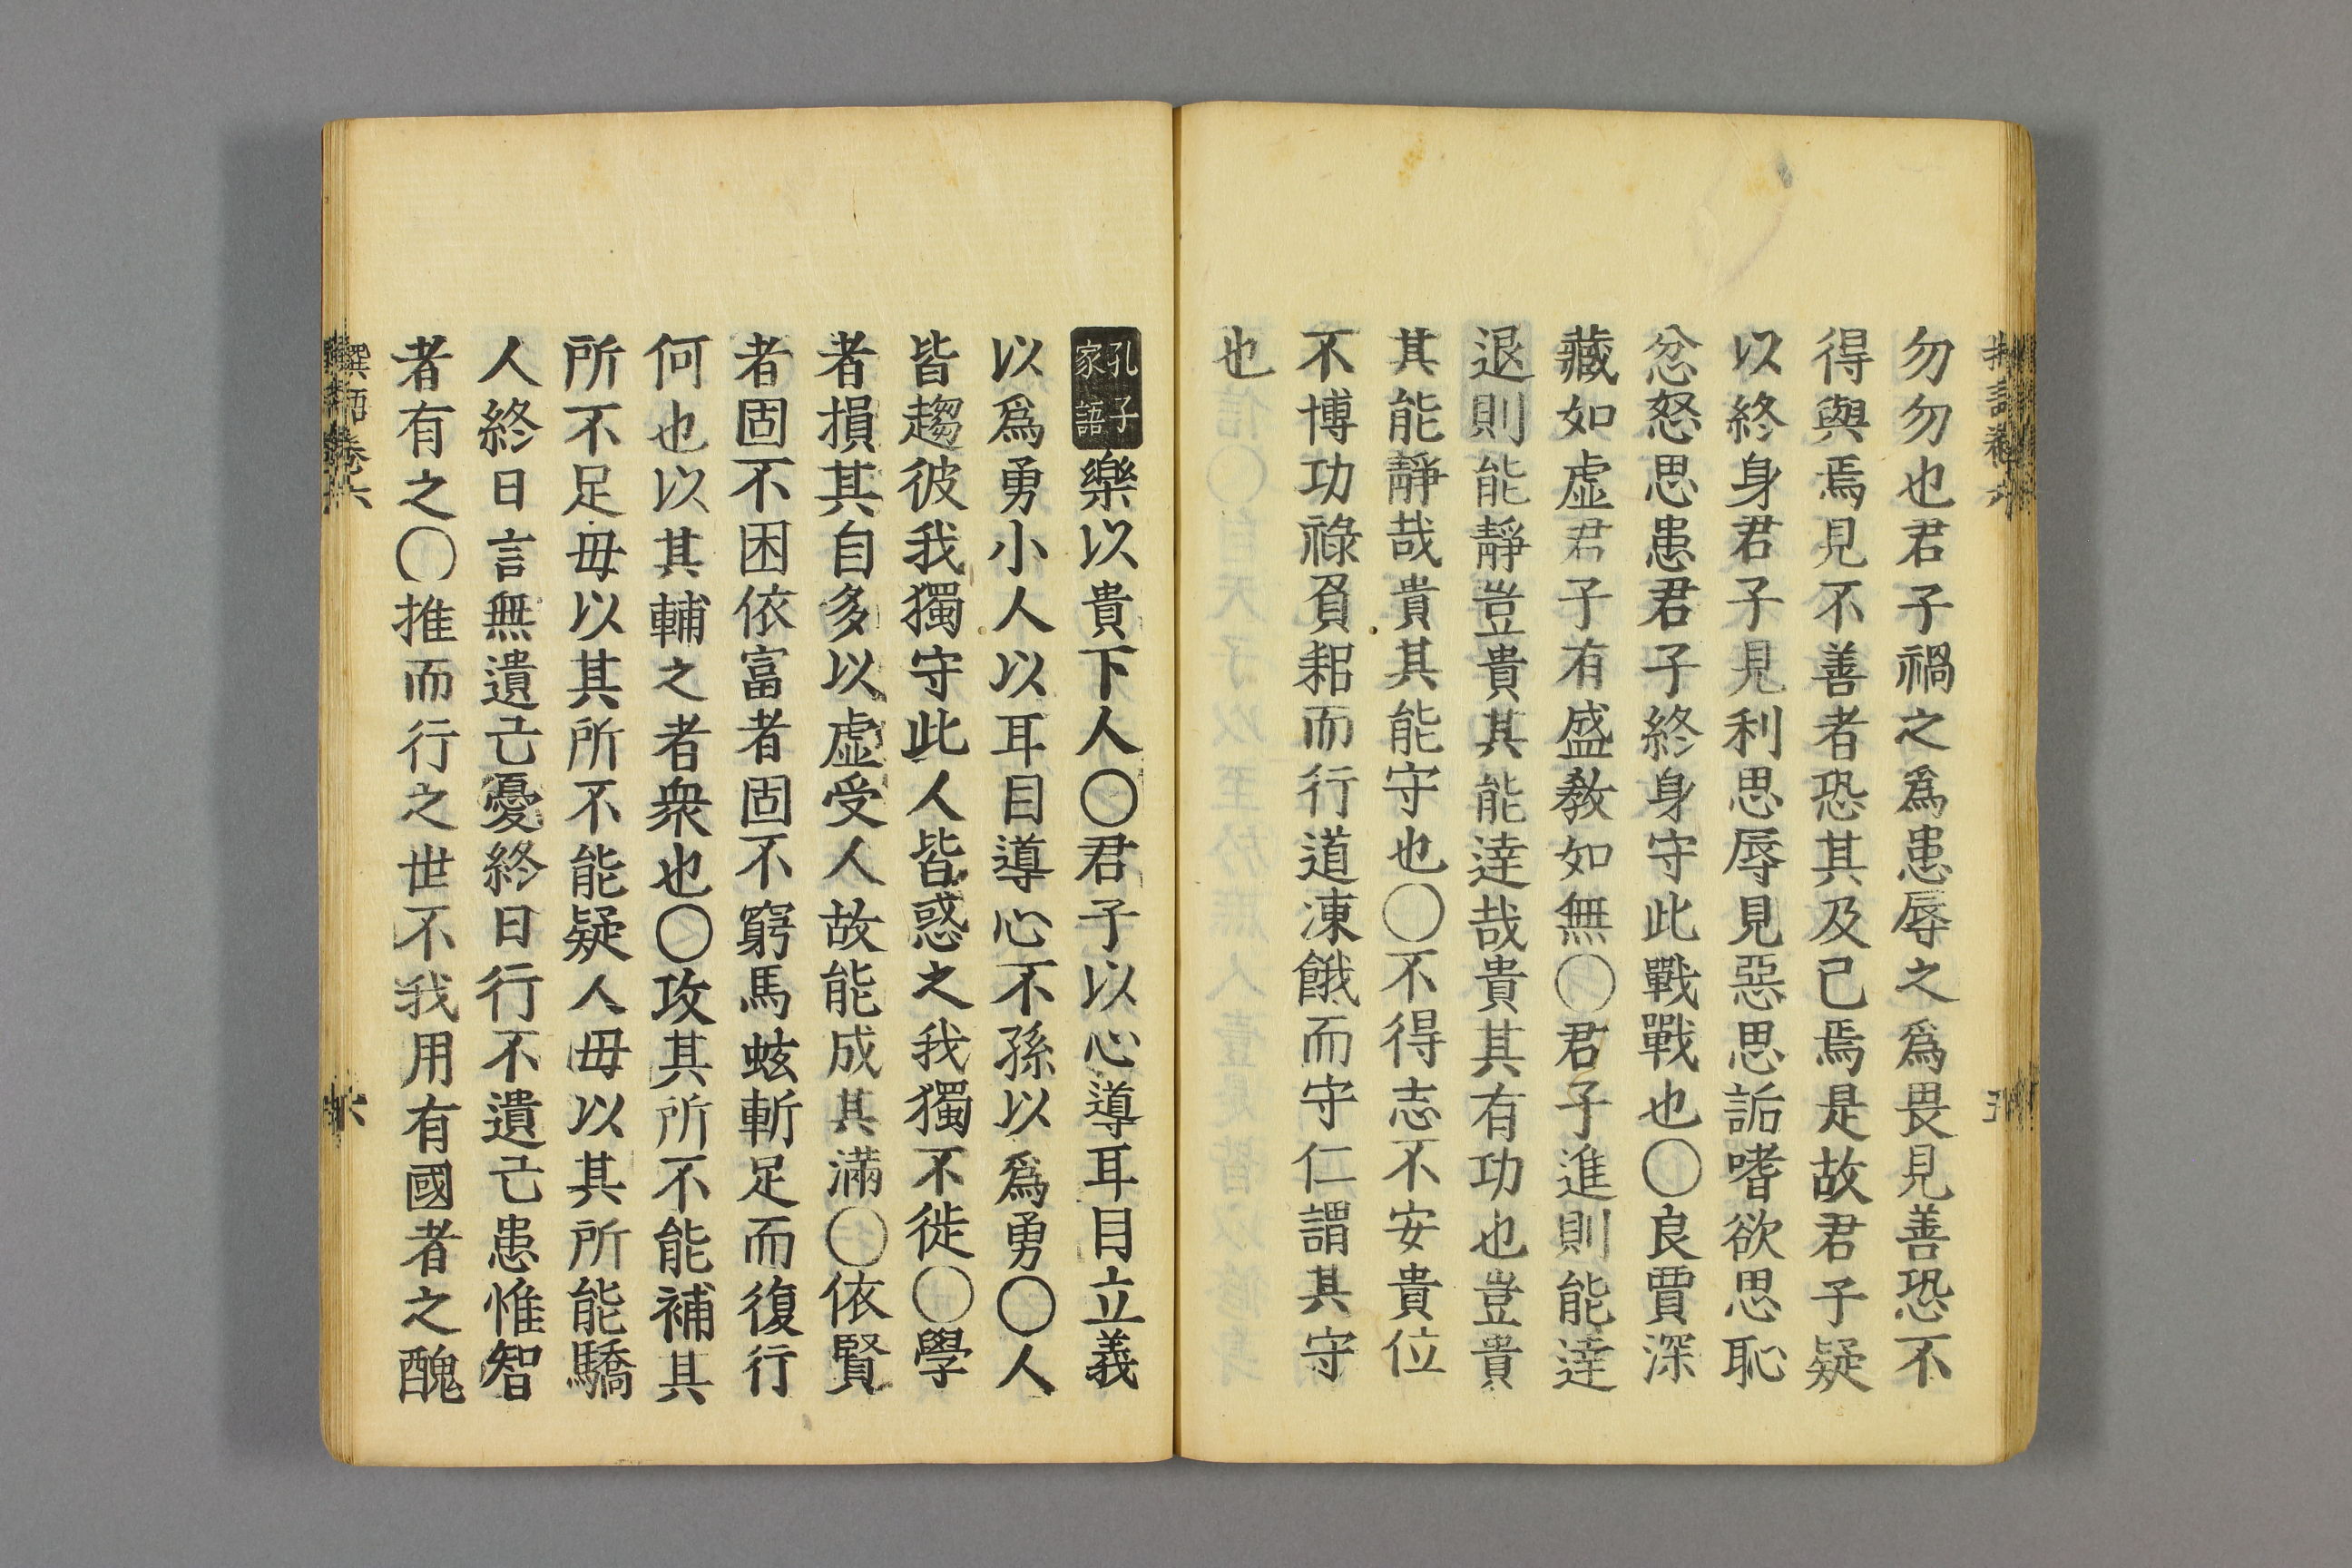 勿勿也君子禍之爲患辱之爲畏見善恐不
得與焉見不善者恐其及己焉是故君子疑
以終身君子見利思辱見惡思詬嗜欲思恥
忿怒思患君子終身守此戰戰也〇良賈深
藏如虚君子有盛教如無〇君子進則能達
退則能靜豈貴其能達哉貴其有功也豈貴
其能靜哉貴其能守也〇不得志不安貴位
不博功祿負耜而行道凍餓而守仁謂其守
也
孔子家語樂以貴下人〇君子以心導耳目立義
以爲勇小人以耳目導心不孫以爲勇〇人
皆趨彼我獨守此人皆惑之我獨不徙〇學
者損其自多以虚受人故能成其滿〇依賢
者固不困依富者固不窮馬蚿斬足而復行
何也以其輔之者衆也〇攻其所不能補其
所不足毋以其所不能疑人毋以其所能驕
人終日言無遺己憂終日行不遺己患惟智
者有之〇推而行之世不我用有國者之醜
語卷六 六